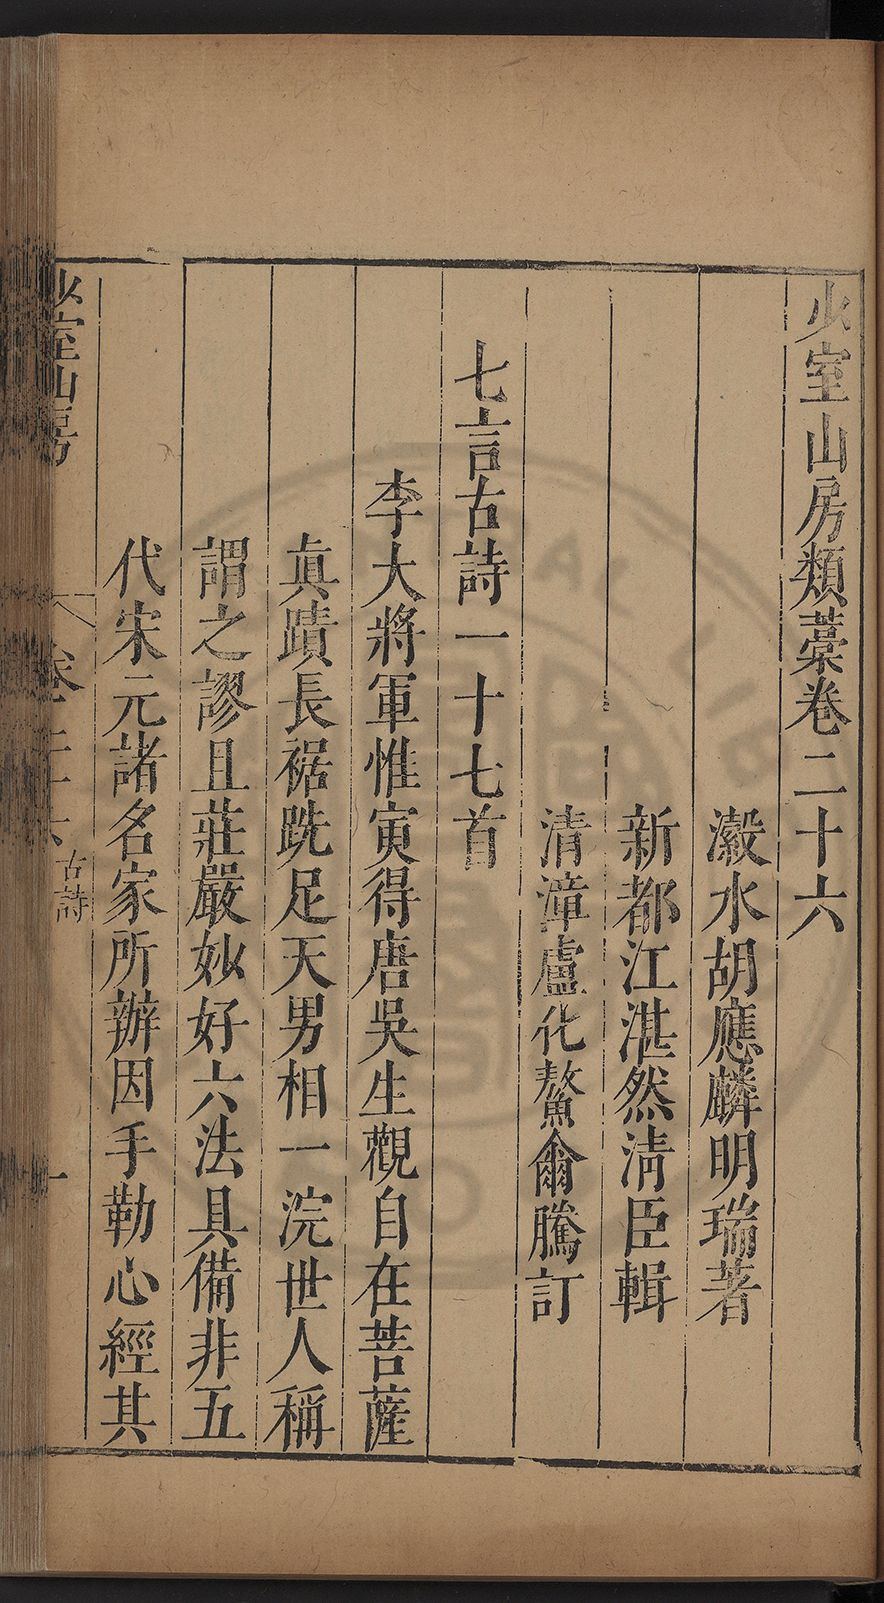 少室山房類藁卷二十六
瀫水胡應麟明瑞著
新都江湛然清臣輯
清漳盧化鰲爾騰訂
七言古詩一十七首
李大將軍惟寅得唐吳生觀自在菩薩
真蹟長裾跣足天男相一浣世人稱
謂之謬且莊嚴妙好六法具備非五
代宋元諸名家所辦因手勒心經其
少室山房
卷二十六
古詩
一